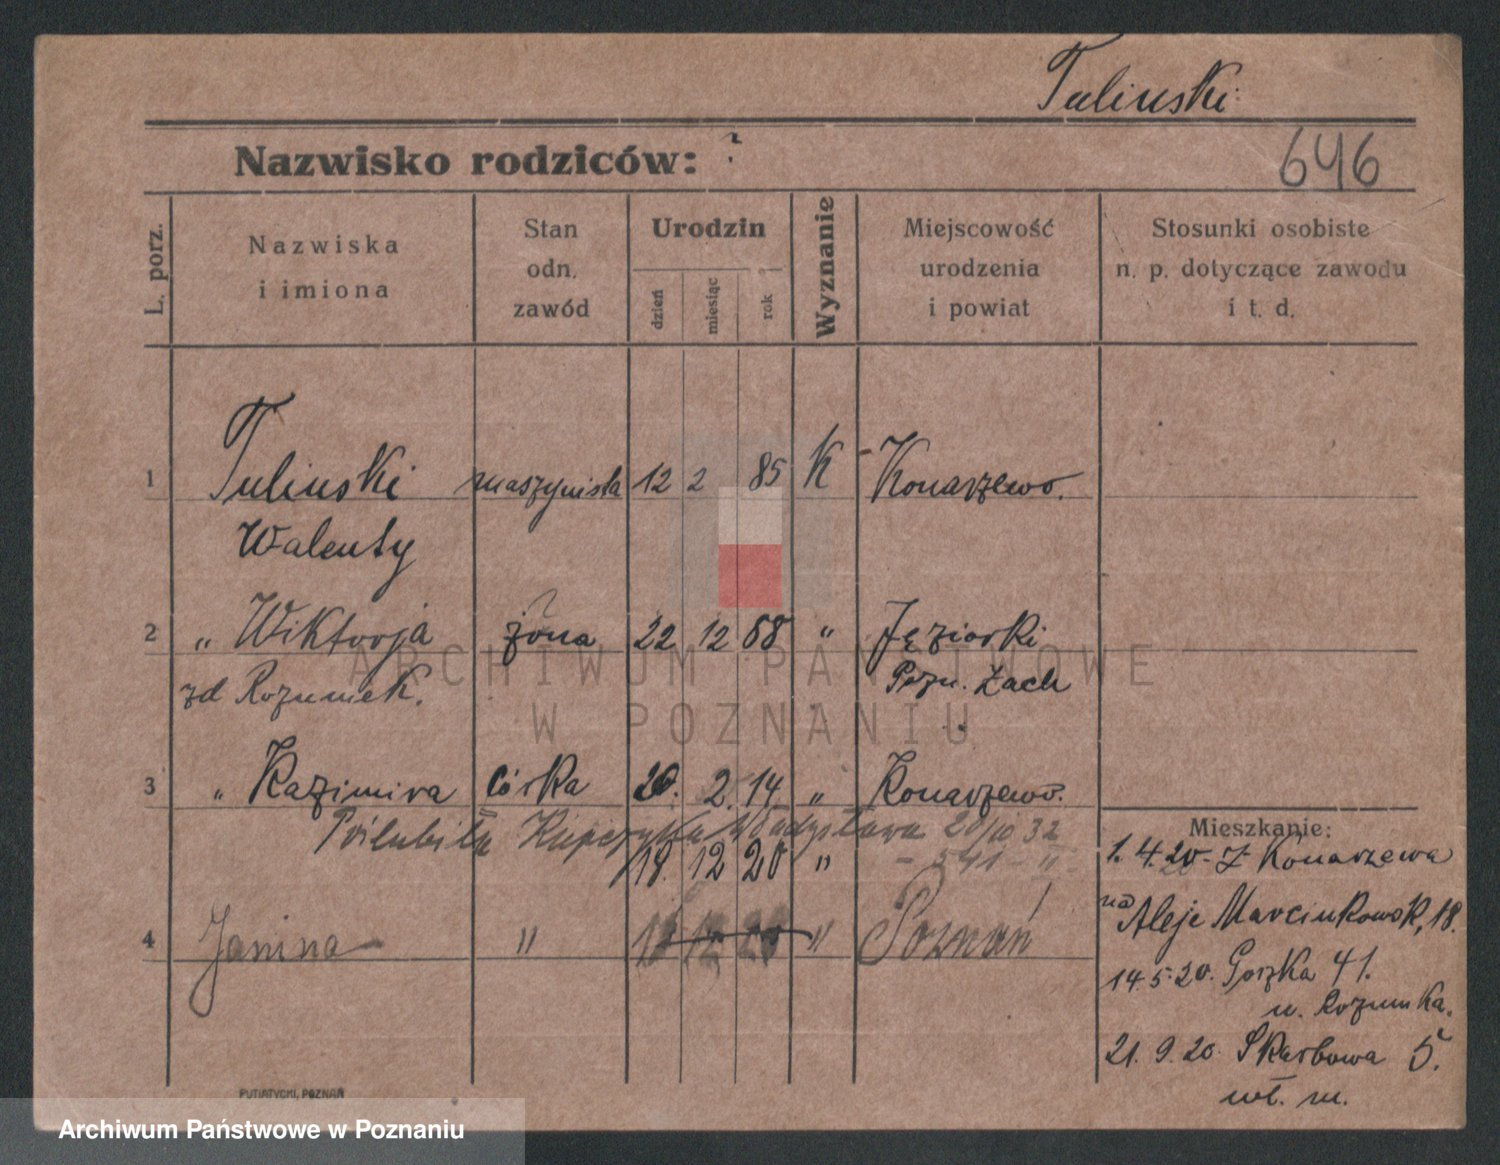 Tulinski
Nazwisko rodziców: ?
646
L. porz.
Nazwiska
i imiona
Stan
odn.
zawód
Urodzin
dzień
miesiąc
rok
Wyznanie
Miejscowość
urodzenia
i powiat
Stosunki osobiste
n. p. dotyczące zawodu
i t. d.
1 Tulinski maszynista 12 2 85 K Konarzewo.
Walenty
2 " Wiktorja żona 22 12 88 " Jęziorki
zd Rozumek. Pozn. Zach
3 " Kazimira córka 20. 2. 14 " Konarzewo.
Poślubiła Władysława 32
18. 12 20 " - 541 - II
4 Janina " 18 12 20 " Poznań
Mieszkanie:
1. 4. 20 - Z Konarzewa
na Aleje Marcinkowsk. 18.
14. 5. 20. Gorzka 41.
u. Rozumka.
21. 9. 20. Skarbowa 5.
wł. m.
PUTIATYCKI, POZNAŃ
ARCHIWUM PAŃSTWOWE
W POZNANIU
Archiwum Państwowe w Poznaniu